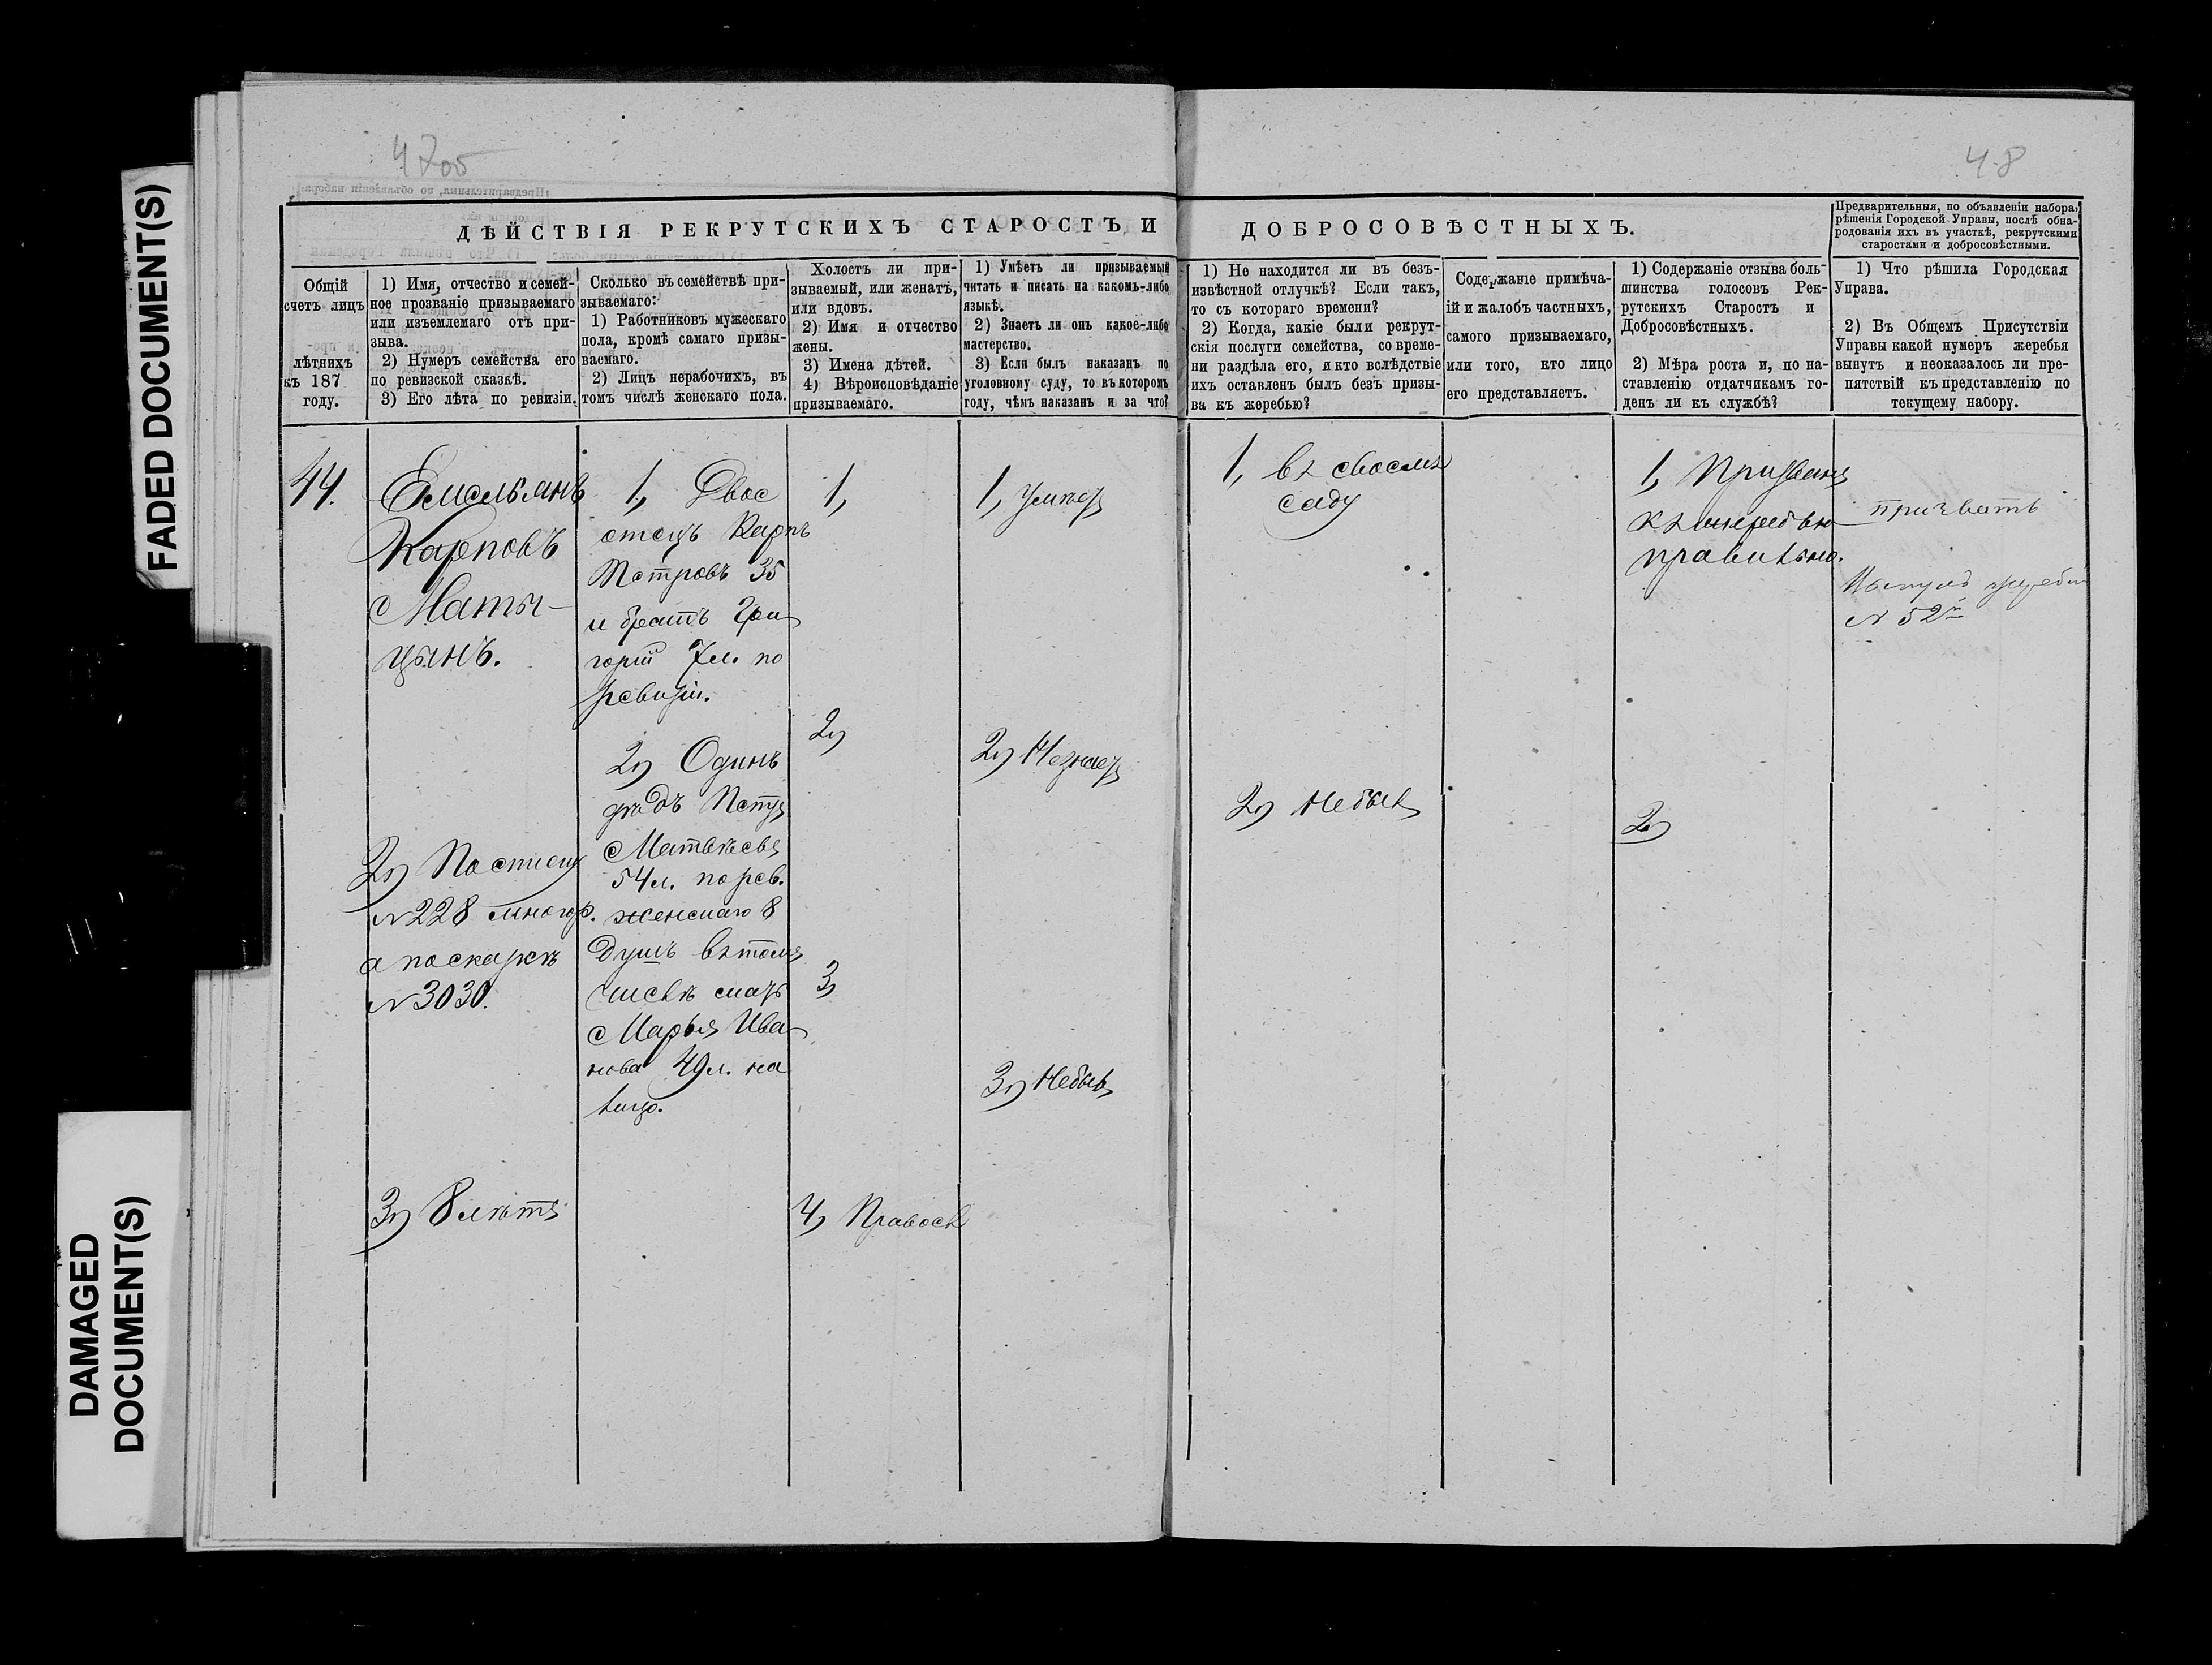 FADED DOCUMENT(S)
DAMAGED
DOCUMENT(S)
48
ДѢЙСТВІЯ РЕКРУТСКИХЪ СТАРОСТЪ И ДОБРОСОВѢСТНЫХЪ.
Предварительныя, по объявленіи набора,
рѣшенія Городской Управы, послѣ обна-
родованія ихъ въ участкѣ, рекрутскими
старостами и добросовѣстными.
Общій
счетъ лицъ
лѣтнихъ
къ 187
году.
1) Имя, отчество и семей-
ное прозваніе призываемаго
или изъемлемаго отъ при-
зыва.
2) Нумеръ семейства его
по ревизской сказкѣ.
3) Его лѣта по ревизіи.
Сколько въ семействѣ при-
зываемаго:
1) Работниковъ мужескаго
пола, кромѣ самаго призы-
ваемаго.
2) Лицъ нерабочихъ, въ
томъ числѣ женскаго пола.
Холостъ ли при-
зываемый, или женатъ,
или вдовъ.
2) Имя и отчество
жены.
3) Имена дѣтей.
4) Вѣроисповѣданіе
призываемаго.
1) Умѣетъ ли призываемый
читать и писать на какомъ-либо
языкѣ.
2) Знаетъ ли онъ какое-либо
мастерство.
3) Если былъ наказанъ по
уголовному суду, то въ которомъ
году, чѣмъ наказанъ и за что?
1) Не находится ли въ безъ-
извѣстной отлучкѣ? Если такъ,
то съ котораго времени?
2) Когда, какіе были рекрут-
скія послуги семейства, со време-
ни раздѣла его, и кто вслѣдствіе
ихъ оставленъ былъ безъ призы-
ва къ жеребью?
Содержаніе примѣча-
ій и жалобъ частныхъ,
самого призываемаго,
или того, кто лицо
его представляетъ.
1) Содержаніе отзыва боль-
шинства голосовъ Рек-
рутскихъ Старостъ и
Добросовѣстныхъ.
2) Мѣра роста и, по на-
ставленію отдатчикамъ го-
денъ ли къ службѣ?
1) Что рѣшила Городская
Управа.
2) Въ Общемъ Присутствіи
Управы какой нумеръ жеребья
вынутъ и неоказалось ли пре-
пятствій къ представленію по
текущему набору.
44.
Емельянъ
Карповъ
Маты-
цынъ.
2) По списку
№ 228 многор.
а по сказкѣ
№ 3030.
3) 8 лѣтъ
1, Двое
отецъ Карпъ
Петровъ 35
и братъ Гри
горій 7 л. по
ревизіи.
2) Одинъ
дѣдъ Петръ
Матвѣевъ
54 л. по рев.
женскаго 8
душъ въ томъ
числѣ мать
Марья Ива-
нова 49 л. на
лицо.
1,
2)
3,
4, Правосл
1, Умѣетъ
2) Незнаетъ
3) Небылъ
1, въ своемъ
саду
2) Небылъ
1, Призванъ
къ жеребью
правильно.
2)
призвать
Вынулъ жребій
№ 52й